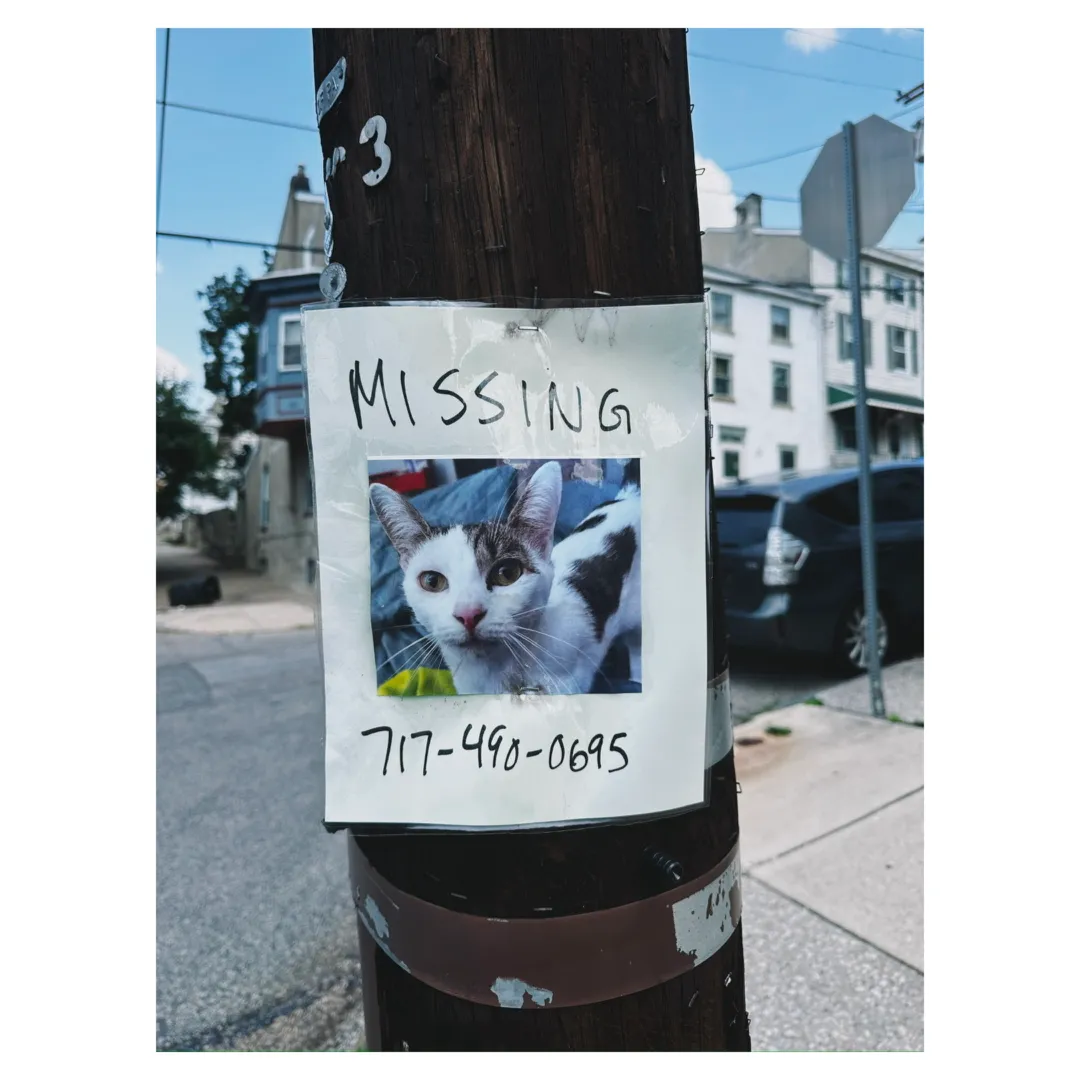 3
MISSING
717-490-0695